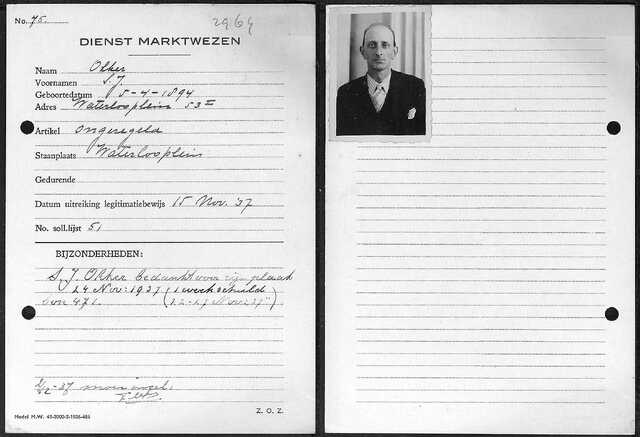 No. 75.
2969
DIENST MARKTWEZEN
Naam Okker
Voornamen S. J.
Geboortedatum 5-4-1894
Adres Waterlooplein 53 II
Artikel ongeregeld
Staanplaats Waterlooplein
Gedurende
Datum uitreiking legitimatiebewijs 15 Nov. 37
No. soll.lijst 51
BIJZONDERHEDEN:
S. J. Okker bedankt voor zijn plaats
24 Nov: 1937 (1 week schuld
Model M.W. 45-2000-2-1936-485
Z. O. Z.